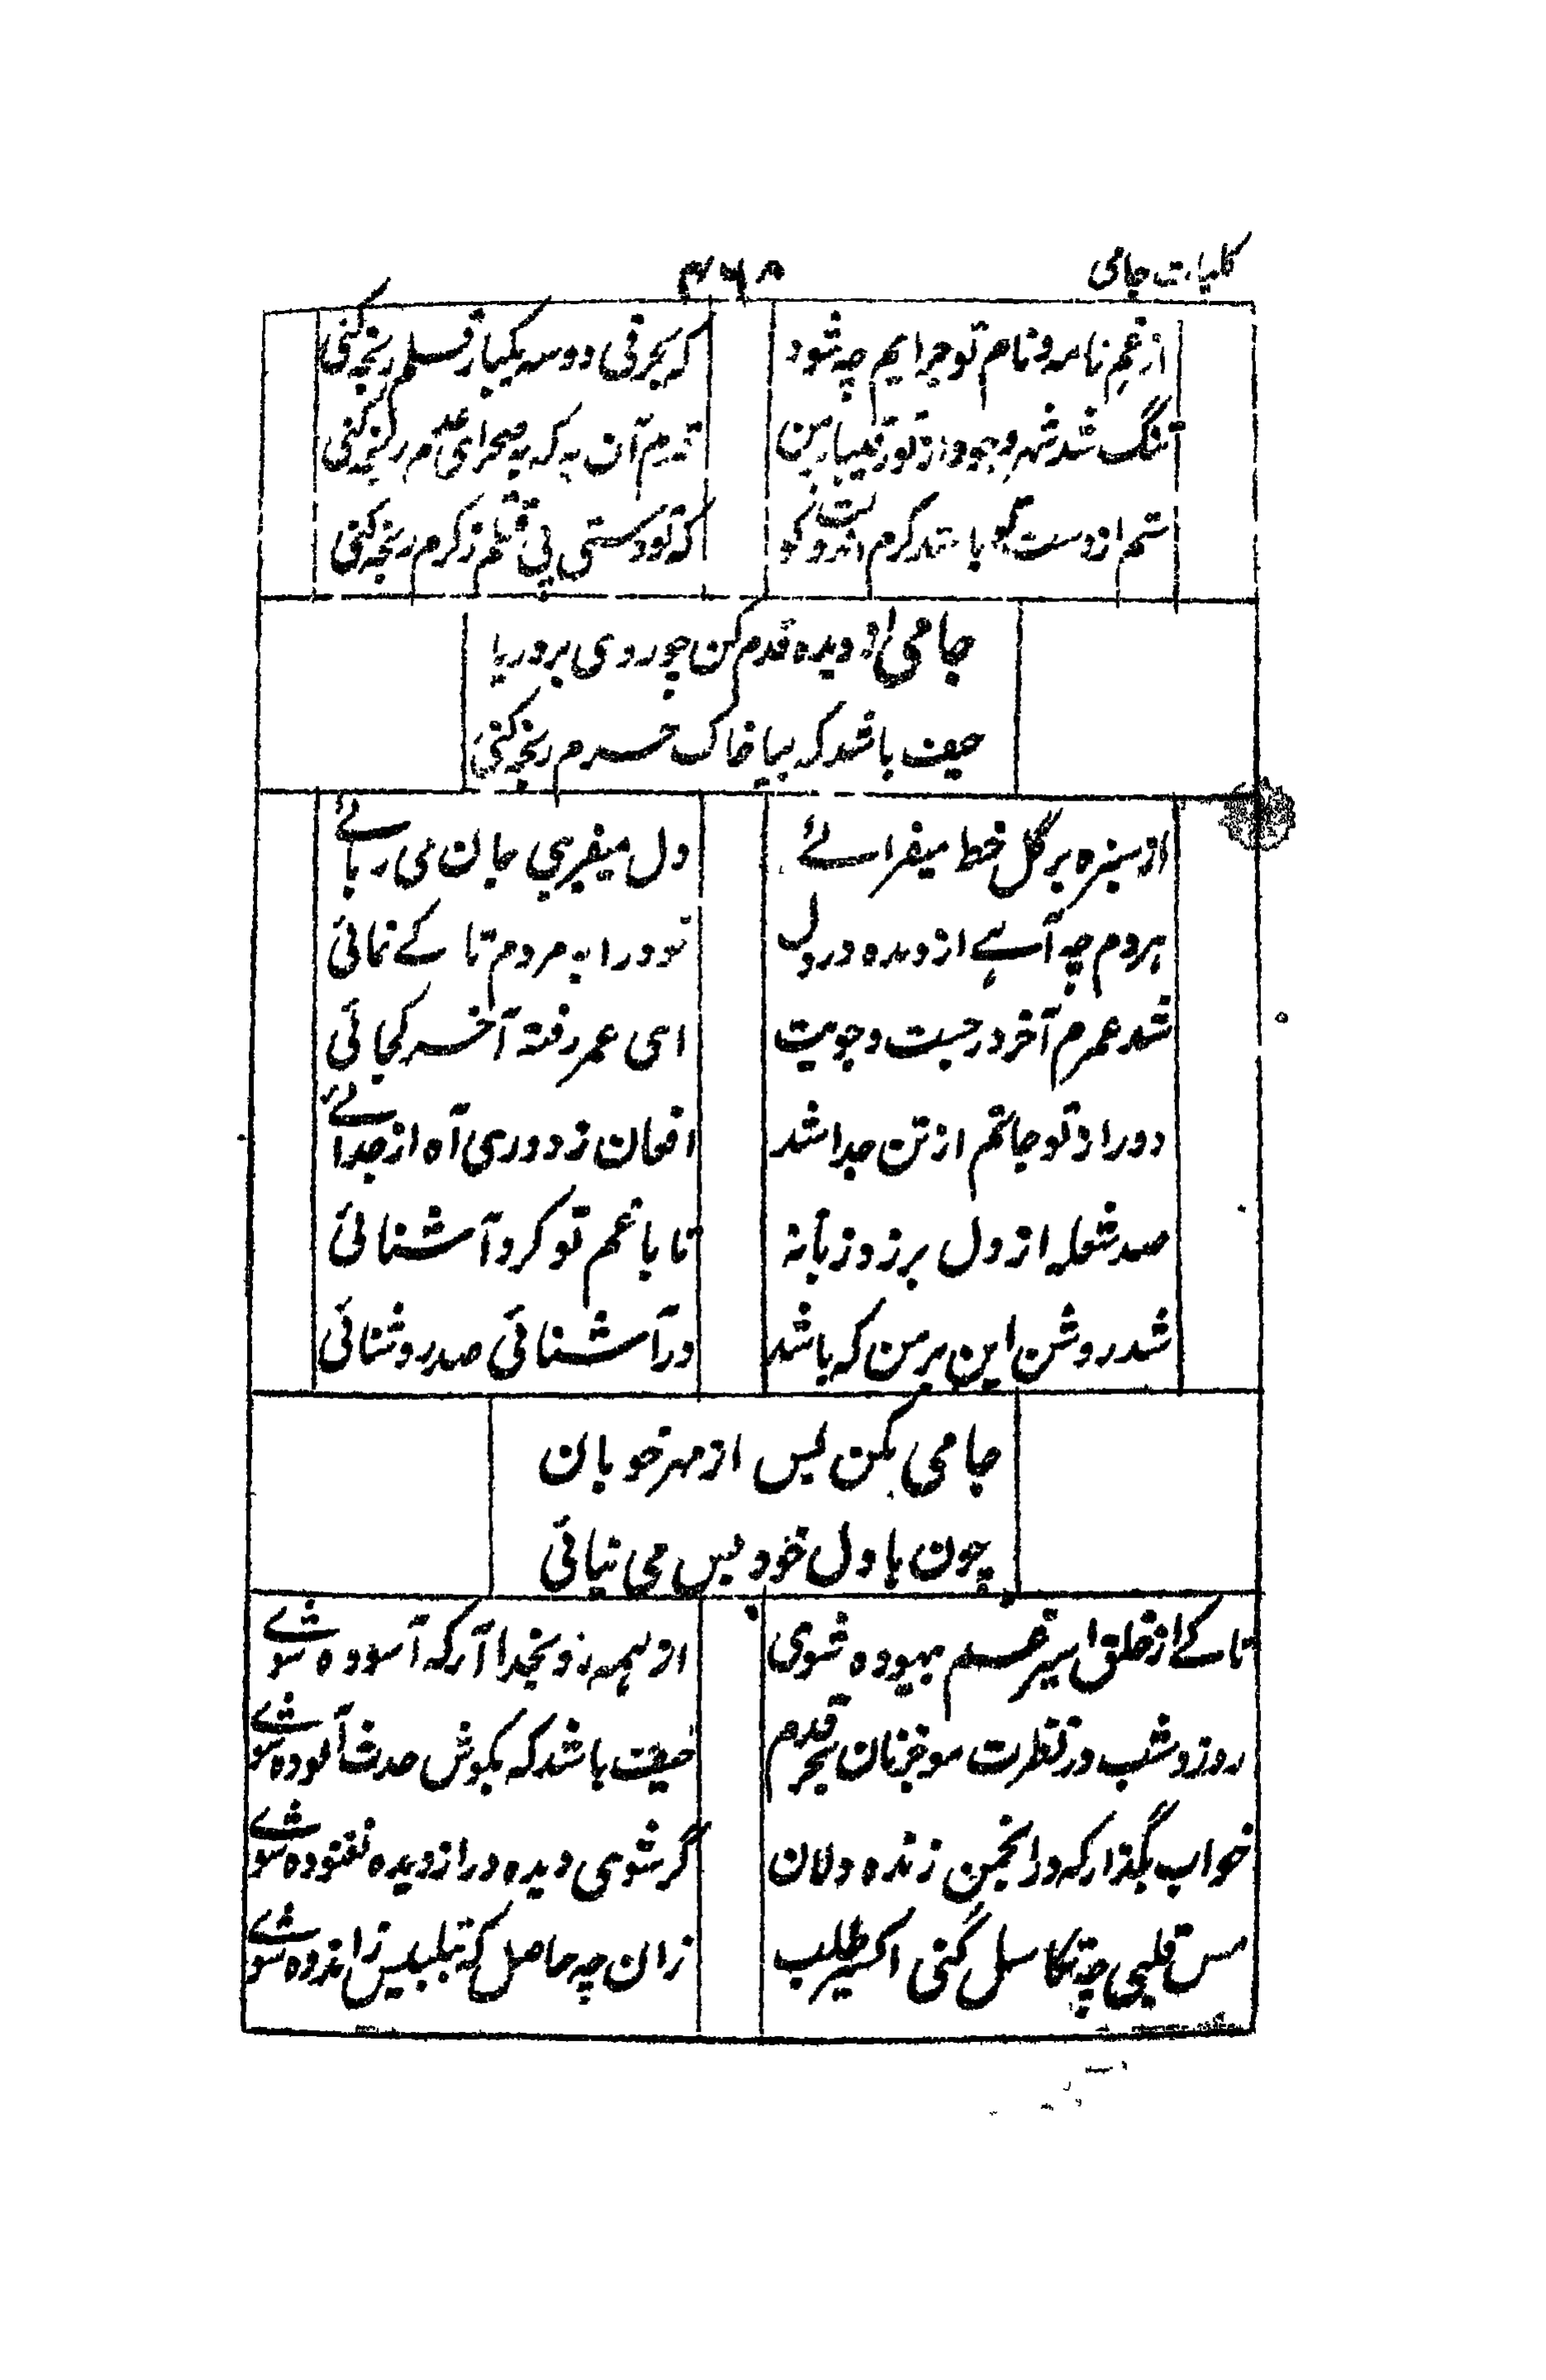 کلیات جامی
۴۶۸
از غم نامه و نام تو چرایم چه شود
که بحرفی دو سه یکبار قلم رنجه کنی
تنگ شد شهر وجود از تو
قدم آن به که به صحرای عدم رنجه کنی
ستم از دست تو باشد کرم
که تو دستی پی قتلم ز کرم رنجه کنی
جامی از دیده قدم کن چو روی بر در یار
حیف باشد که بپا خاک حرم رنجه کنی
از سبزه بر گل خط میفزائے
دل میفریبی جان می ربائے
هردم چه آئے از دیده در دل
خود را به مردم تا کے نمائی
شد عمرم آخر در جست و جویت
ای عمر رفته آخر کجائی
دور از تو جانم از تن جدا شد
افغان ز دوری آه از جدائے
صد شعله از دل برزد زبانه
تا با غم تو کرد آشنائی
شد روشن این بر من که باشد
در آشنائی صد روشنائی
جامی مکن بس از مهر خوبان
چون با دل خود بس می نیائی
تا کے از خلق اسیر غم بیهوده شوی
از همه رو بخدا آر که آسوده شوے
روز و شب در نظرت موج زنان بحر قدم
حیف باشد که بلوث حدث آلوده شوے
خواب بگذار که در انجمن زنده دلان
گر شوی دیده ور از دیده نغنوده شوے
مس قلبی چه تکاسل کنی اکسیر طلب
زان چه حاصل که بتلبیس زراندوده شوے